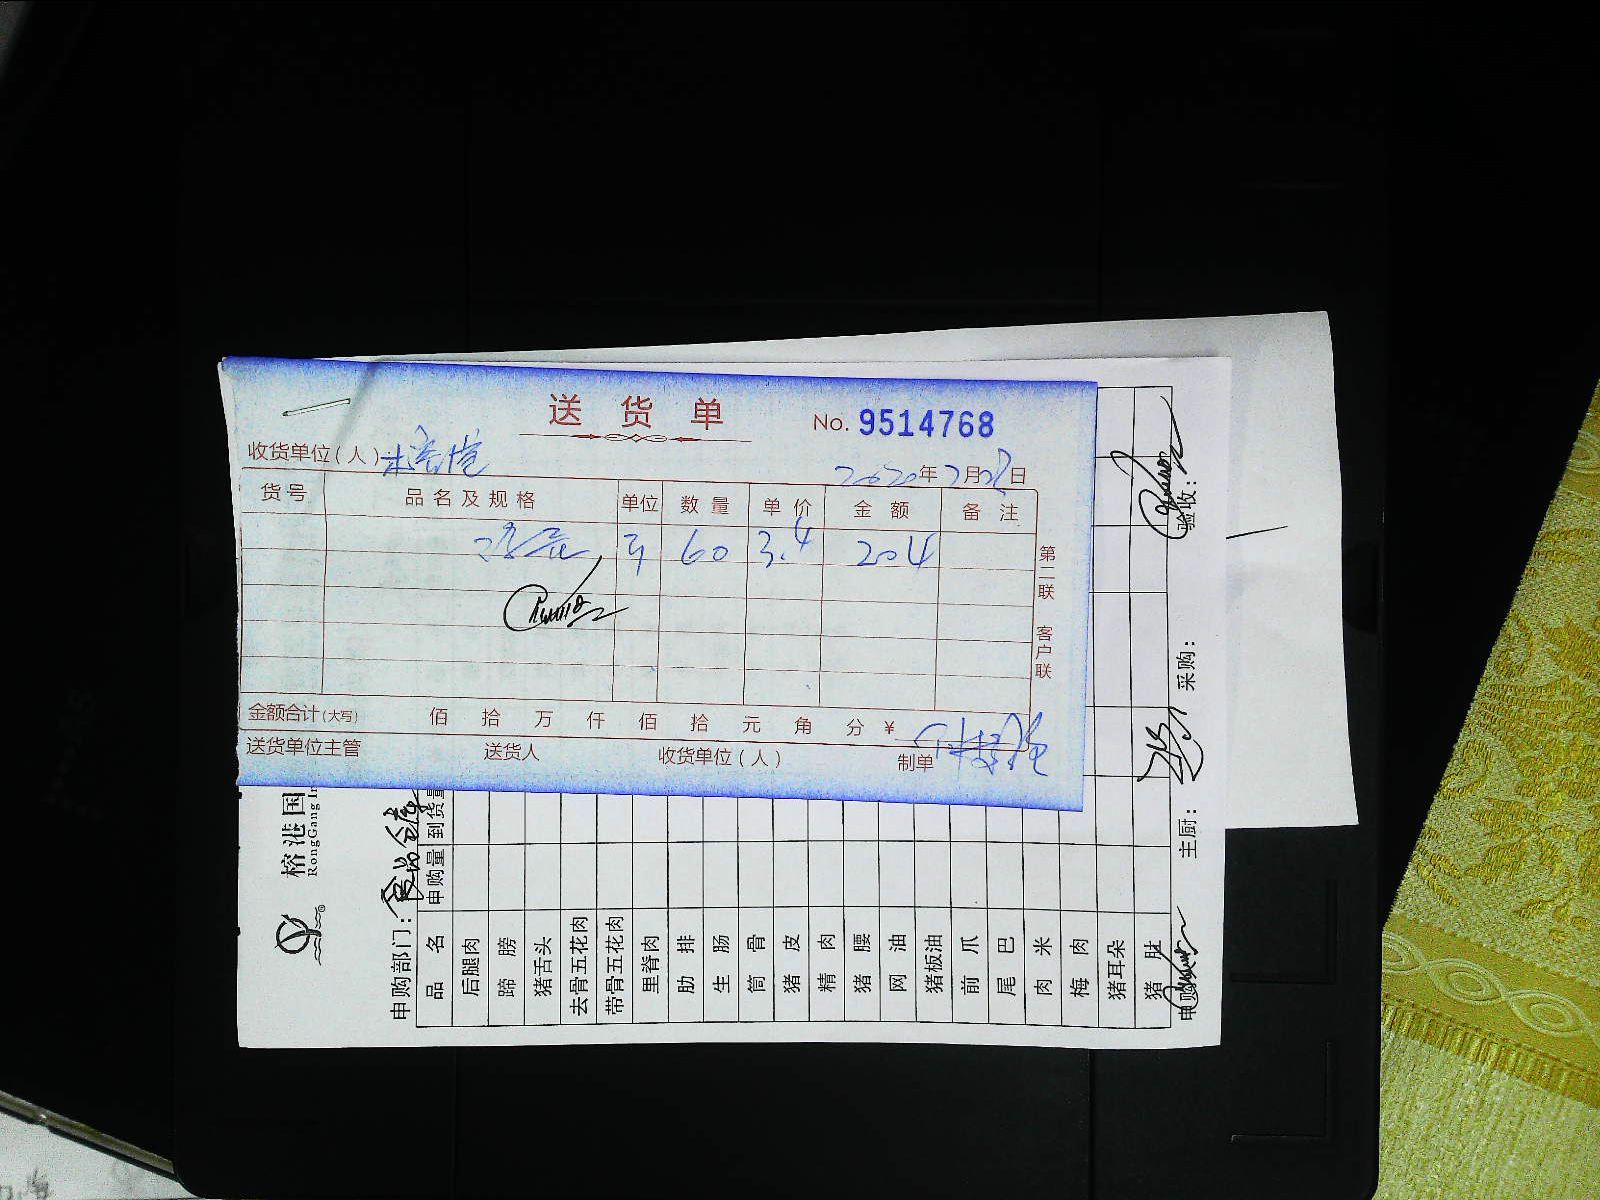 送货单
No. 9514768
收货单位(人)
2020年7月 日
货号 品名及规格 单位 数量 单价 金额 备注
60 3.4 204
第二联 客户联
金额合计(大写) 佰 拾 万 仟 佰 拾 元 角 分 ¥
送货单位主管 送货人 收货单位(人) 制单
榕港国
RongGang In
申购部门:
品名 申购量 到货量
后腿肉
蹄膀
猪舌头
去骨五花肉
带骨五花肉
里脊肉
肋排
生肠
筒骨
猪皮
精肉
猪腰
网油
猪板油
前爪
尾巴
肉米
梅肉
猪耳朵
猪肚
申购 主厨: 采购: 验收: